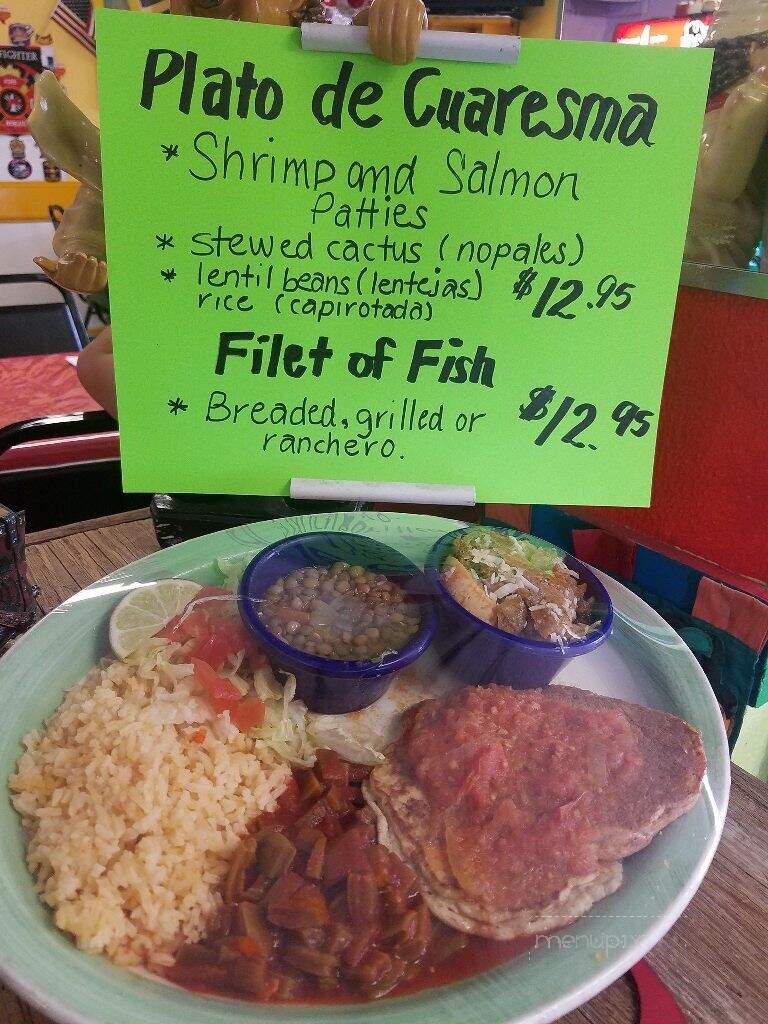 Plato de Cuaresma
* Shrimp and Salmon
Patties
* stewed cactus (nopales)
* lentil beans (lentejas) $12.95
rice (capirotada)
Filet of Fish
* Breaded, grilled or $12.95
ranchero.
FIGHTER
menupix